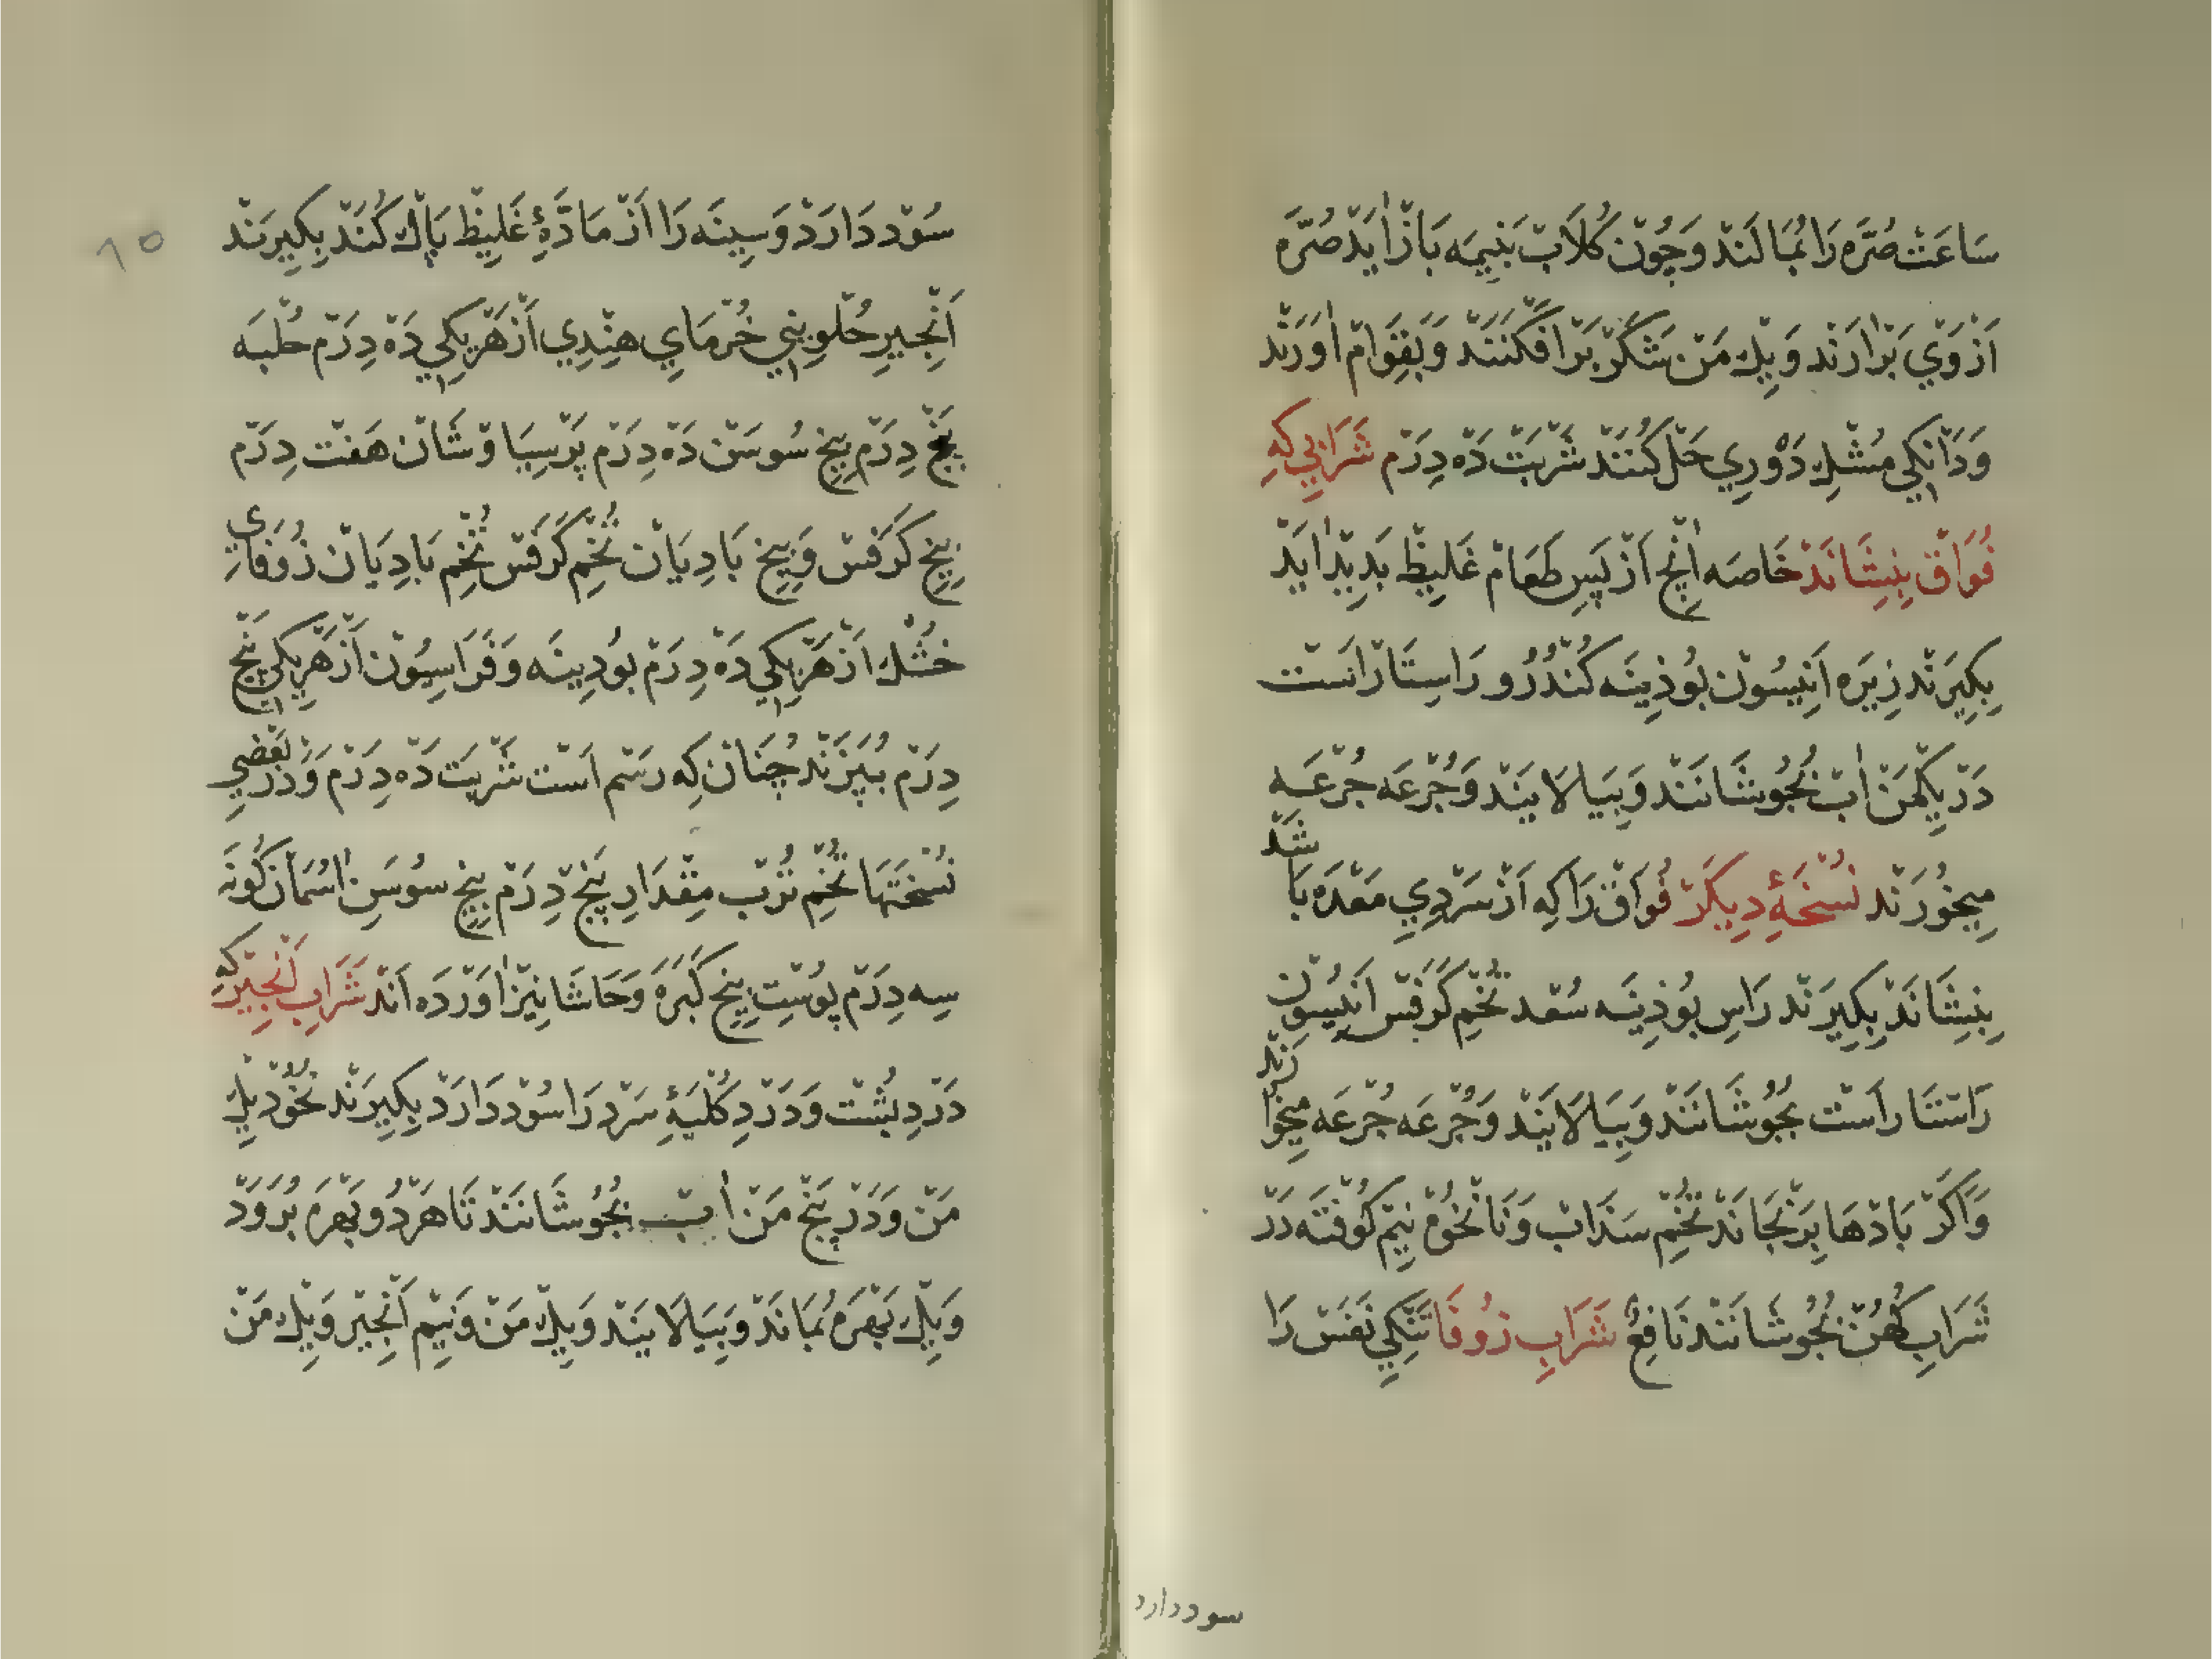 سَاعَتْ صُرَّه رَا بُمَالَنْد وَچُوْن كُلَابْ بَنِيمَه بَازْ اٰيَدْ صُرَّه
اَزْ وَيْ بَرْاٰرَنْد وَيِكْ مَنْ شَكَرْ بَرْ اَفْكَنَنْدْ وَبَقِوَامْ اٰوَرَنْد
وَدَانْكِي مُشْكِ دَوْرِي حَلْ كُنَنْدْ شَرْبَتْ دَه دِرَمْ شَرَابِي كِه
فُوَاقْ بِنِشَانَدْ خَاصَه اٰنْچِ اَزْ پَسِ طَعَامْ غَلِيظْ بَدِيْدْ اٰيَدْ
بِكِيَرنْد زِيرَه اَنِيسُوْن بُوذِينَه كُنْدُرُو رَاسِتَا رَاسَتْ
دَرْ يِكْمَنْ اٰبْ بُجُوشَانَنْد وَبِيَالَايَنْد وَجُرْعَه جُرْعَه
مِيخُورَنْد نُسْخَهٔ دِيكَرْ فُوَاقْ رَا كِه اَزْ سَرْدِيِ مَعْدَه بَا شَدْ
بِنِشَانَدْ بِكِيرَنْد رَاسِ بُوذِينَه سُعْد تُخْمِ كَرَفْسْ اَنِيسُوْن
رَاسْتَا رَاسَتْ بُجُوشَانَنْد وَبِيَالَايَنْد وَجُرْعَه جُرْعَه مِيخُوا رَنْد
وَاَكَرْ بَادْهَا بِرَنْجَانَدْ تُخْمِ سَذَابْ وَنَانْخُوَهْ نِيمْ كُوفْتَه دَرْ
شَرَابِ كُهُنْ بُجُوشَانَنْد نَافِعْ شَرَابِ زُوفَا تَنْكِي نَفَسْ رَا
سوددارد
سُوْد دَارَدْ وَسِينَه رَا اَزْ مَادَّهٔ غَلِيظْ پَاكْ كُنَنْدْ بِكِيرَنْد
اَنْجِيرِ حُلْوِينِي خُرْمَايِ هِنْدِي اَزْ هَرْيِكِي دَه دِرَمْ حُلْبَه
پَنْجْ دِرَمْ بِيخِ سُوسَنْ دَه دِرَمْ پَرْسِيَاوْشَانْ هَفْتْ دِرَمْ
بِيخِ كَرَفْسْ وَبِيخِ بَادِيَانْ تُخْمِ كَرَفْسْ تُخْمِ بَادِيَانْ زُوفَايِ
خُشْكْ اَزْ هَرْيِكِي دَه دِرَمْ بُودِينَه وَفَرَاسِيُوْن اَزْ هَرْيِكِي پَنْجْ
دِرَمْ بُپَزَنْد چُنَانْ كِه رَسْم اَسْت شَرْبَتْ دَه دِرَمْ وَدَرْ بَعْضِي
نُسْخَتْهَا تُخْمِ تُرْب مِقْدَارِ پَنْجْ دِرَمْ بِيخِ سُوسَنِ اٰسْمَانْ كُونَه
سِه دِرَمْ پُوسْتِ بِيخِ كَبَرَه وَحَاشَا نِيْزْ اٰوَرْدَه اَنْد شَرَابِ اَنْجِيرْ كِه
دَرْدِ بُشْتْ وَدَرْدِ كُلْيَهٔ سَرْد رَا سُوْد دَارَدْ بِكِيرَنْد نُخُوْد يِكْ
مَنْ وَدَرْ پَنْجْ مَنْ اٰبْ بُجُوشَانَنْد تَا هَرْ دُو بَهْرَه بُرَوَدْ
وَيِكْ بَهْرَه بُمَانَدْ وَبِيَالَايَنْد وَيِكْ مَنْ وَنِيمْ اَنْجِيرْ وَيِكْ مَنْ